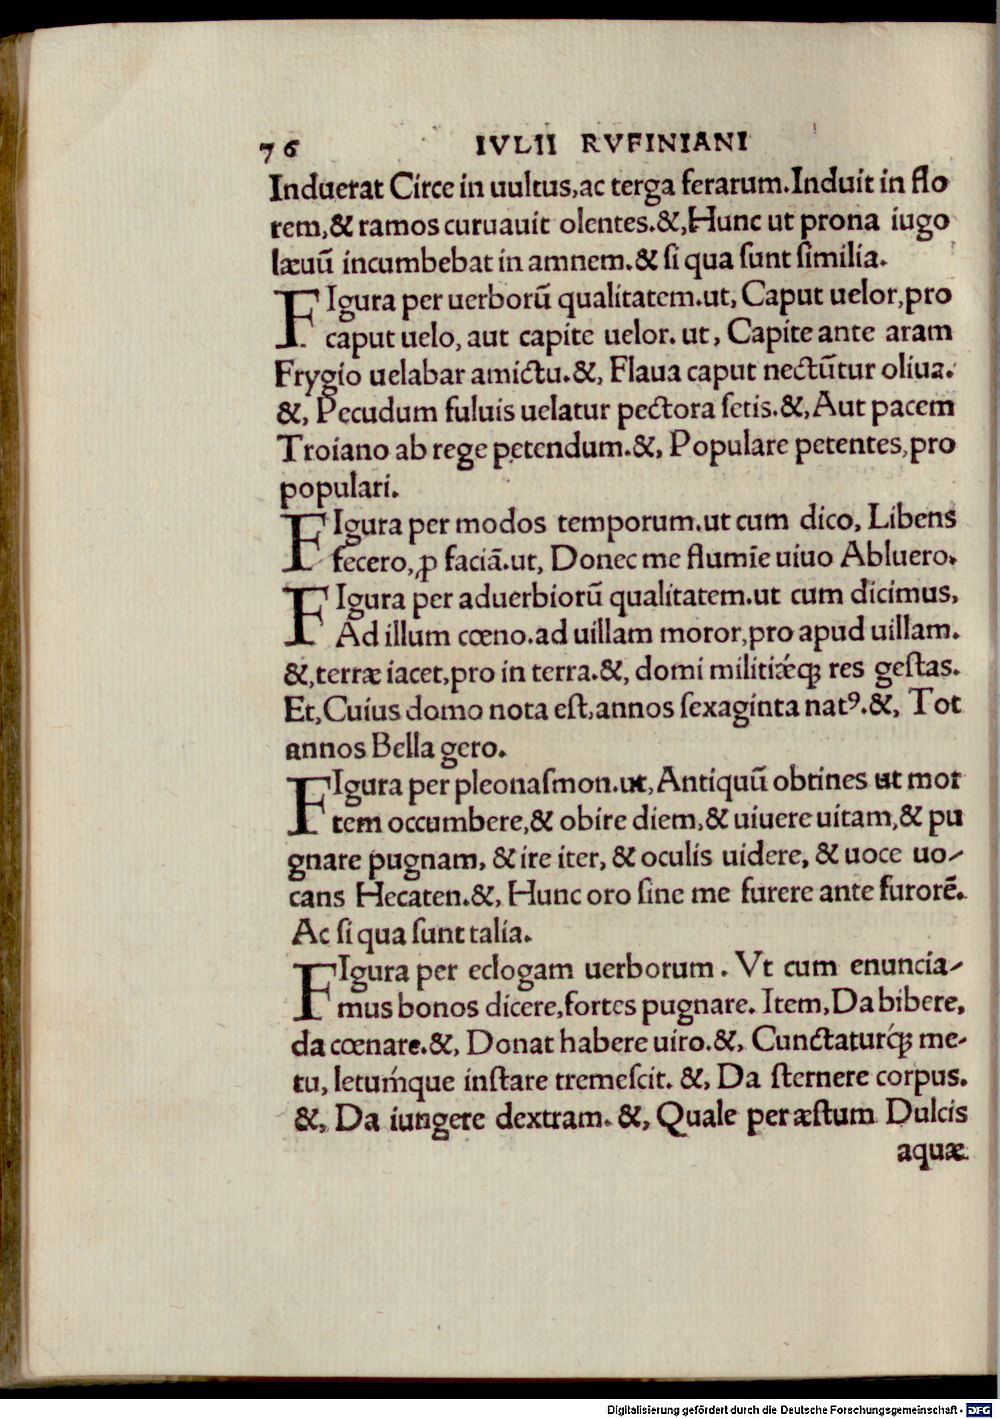 76 IVLII RVFINIANI
Induerat Circe in uultus,ac terga ferarum.Induit in flo
rem,& ramos curuauit olentes.&,Hunc ut prona iugo
læuũ incumbebat in amnem.& ſi qua ſunt ſimilia.
FIgura per uerborũ qualitatem.ut, Caput uelor,pro
caput uelo, aut capite uelor. ut, Capite ante aram
Frygio uelabar amictu.&, Flaua caput nectũtur oliua.
&, Pecudum fuluis uelatur pectora ſetis.&, Aut pacem
Troiano ab rege petendum.&, Populare petentes,pro
populari.
FIgura per modos temporum.ut cum dico, Libens
fecero, ꝓ faciã.ut, Donec me flumĩe uiuo Abluero.
FIgura per aduerbiorũ qualitatem.ut cum dicimus,
Ad illum cœno.ad uillam moror,pro apud uillam.
&,terræ iacet,pro in terra.&, domi militiǽq; res geſtas.
Et,Cuius domo nota eſt,annos ſexaginta natꝰ.&, Tot
annos Bella gero.
FIgura per pleonaſmon.ut, Antiquũ obtines ut mor
tem occumbere,& obire diem,& uiuere uitam,& pu
gnare pugnam, & ire iter, & oculis uidere, & uoce uo-
cans Hecaten.&, Hunc oro ſine me furere ante furorẽ.
Ac ſi qua ſunt talia.
FIgura per eclogam uerborum. Vt cum enuncia-
mus bonos dicere,fortes pugnare. Item,Da bibere,
da cœnare.&, Donat habere uiro.&, Cunctaturq́; me-
tu, letumq́ue inſtare tremeſcit. &, Da ſternere corpus.
&, Da iungere dextram. &, Quale per æſtum Dulcis
aquæ
Digitalisierung gefördert durch die Deutsche Forschungsgemeinschaft - DFG